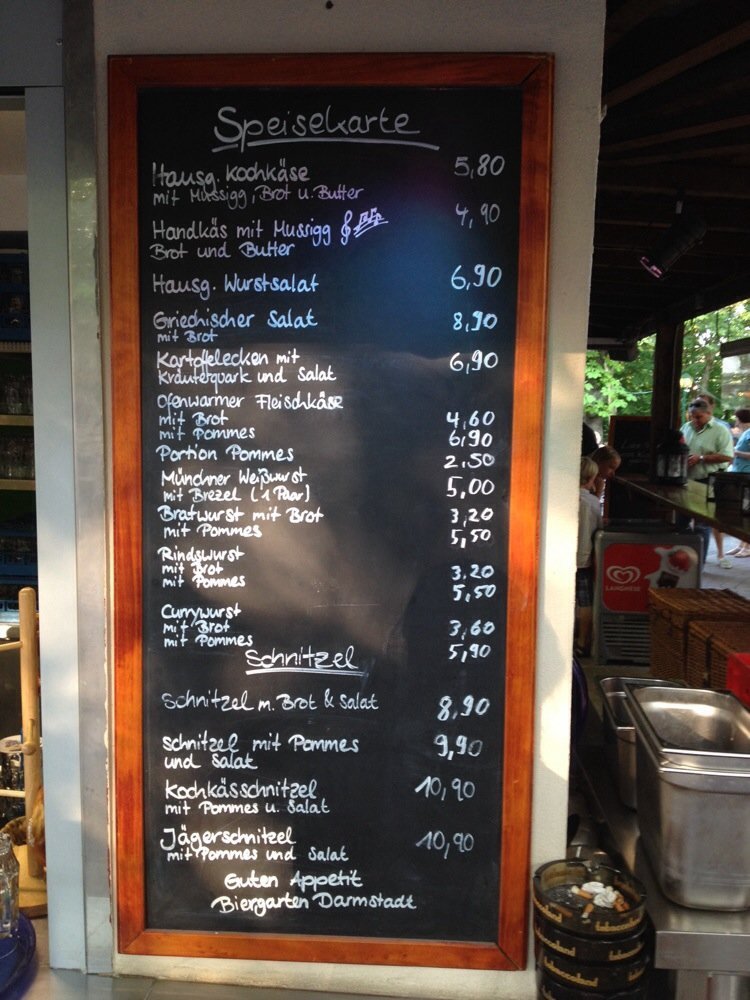 Speisekarte
Hausg. Kochkäse 5,80
mit Mussigg, Brot u. Butter
Handkäs mit Mussigg 4,90
Brot und Butter
Hausg. Wurstsalat 6,90
Griechischer Salat 8,90
mit Brot
Kartoffelecken mit 6,90
Kräuterquark und Salat
Ofenwarmer Fleischkäse
mit Brot 4,60
mit Pommes 6,90
Portion Pommes 2,50
Münchner Weißwurst
mit Brezel (1 Paar) 5,00
Bratwurst mit Brot 3,20
mit Pommes 5,50
Rindswurst
mit Brot 3,20
mit Pommes 5,50
Currywurst
mit Brot 3,60
mit Pommes 5,90
Schnitzel
Schnitzel m. Brot & Salat 8,90
Schnitzel mit Pommes 9,90
und Salat
Kochkässchnitzel 10,90
mit Pommes u. Salat
Jägerschnitzel 10,90
mit Pommes und Salat
Guten Appetit
Biergarten Darmstadt
LANGNESE